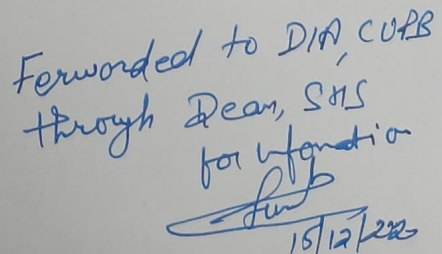 Forwarded to DIA, CUPB
through Dean, SHS
for Information
15/12/2020